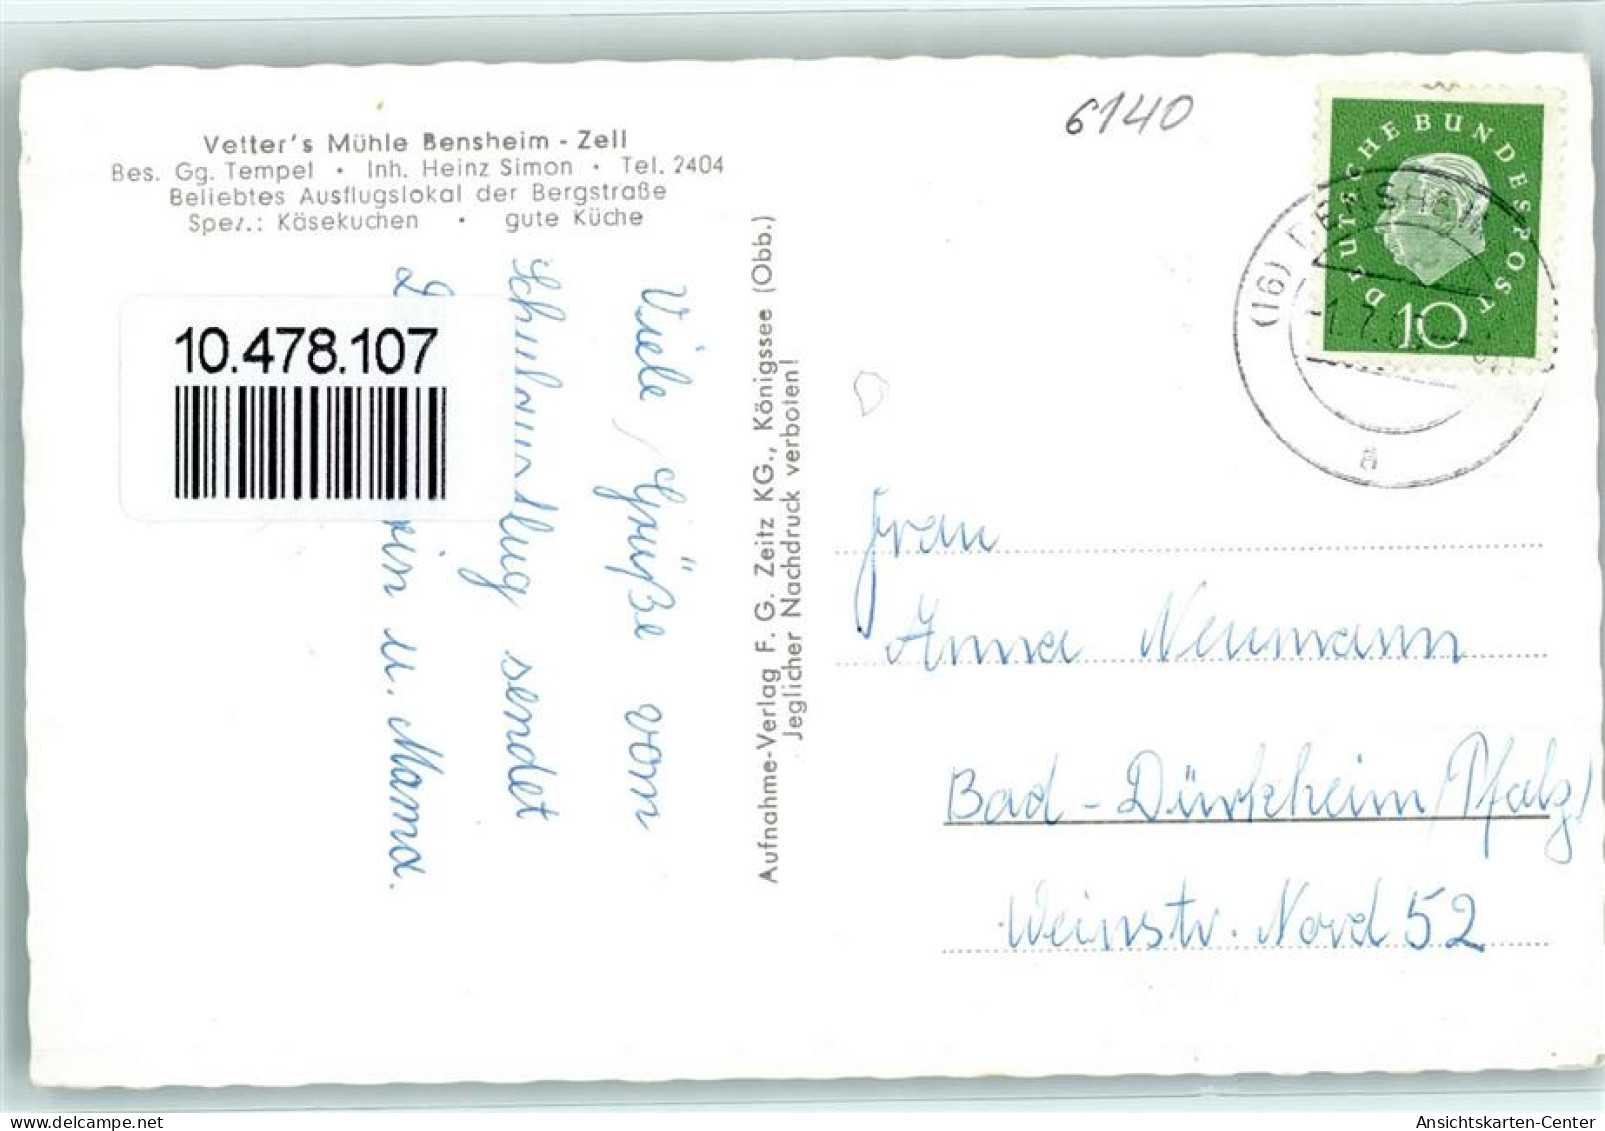 Vetter's Mühle Bensheim - Zell
Bes. Gg. Tempel · Inh. Heinz Simon · Tel. 2404
Beliebtes Ausflugslokal der Bergstraße
Spez.: Käsekuchen · gute Küche
10.478.107
Viele Grüße vom
Schulausflug sendet
u. Mama.
Aufnahme-Verlag F. G. Zeitz KG., Königssee (Obb.)
Jeglicher Nachdruck verboten!
6140
DEUTSCHE BUNDESPOST
10
(16) BENSHEIM
a
Frau
Anna Neumann
Bad-Dürkheim/Pfalz/
Weinstr. Nord 52
Ansichtskarten-Center